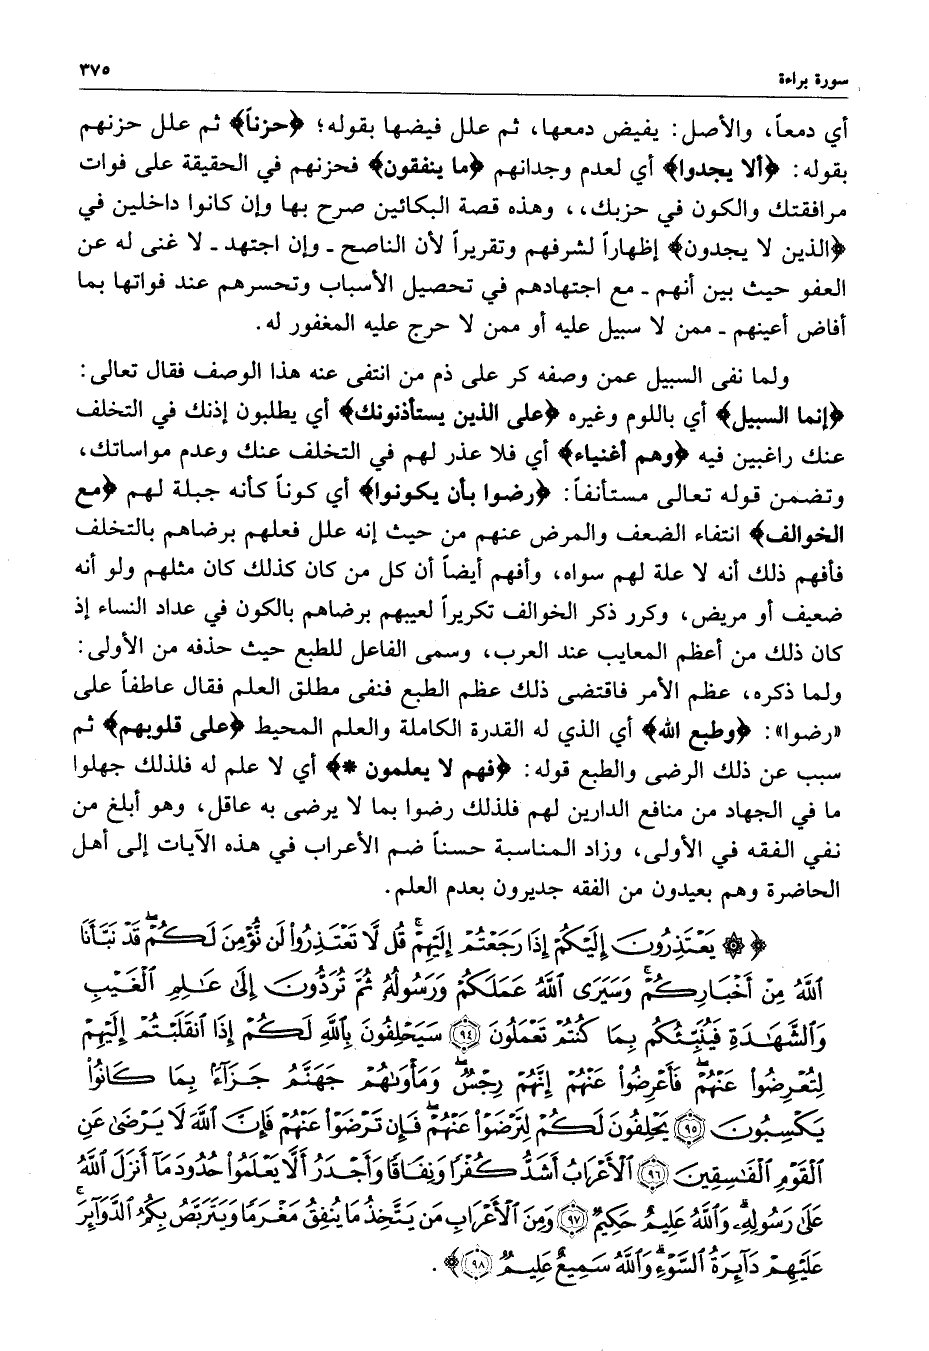 سورة براءة
٣٧٥
أي دمعاً، والأصل: يفيض دمعها، ثم علل فيضها بقوله؛ ﴿حزناً﴾ ثم علل حزنهم
بقوله: ﴿ألا يجدوا﴾ أي لعدم وجدانهم ﴿ما ينفقون﴾ فحزنهم في الحقيقة على فوات
مرافقتك والكون في حزبك،، وهذه قصة البكائين صرح بها وإن كانوا داخلين في
﴿الذين لا يجدون﴾ إظهاراً لشرفهم وتقريراً لأن الناصح ـ وإن اجتهد ـ لا غنى له عن
العفو حيث بين أنهم ـ مع اجتهادهم في تحصيل الأسباب وتحسرهم عند فواتها بما
أفاض أعينهم ـ ممن لا سبيل عليه أو ممن لا حرج عليه المغفور له.
ولما نفى السبيل عمن وصفه كر على ذم من انتفى عنه هذا الوصف فقال تعالى:
﴿إنما السبيل﴾ أي باللوم وغيره ﴿على الذين يستأذنونك﴾ أي يطلبون إذنك في التخلف
عنك راغبين فيه ﴿وهم أغنياء﴾ أي فلا عذر لهم في التخلف عنك وعدم مواساتك،
وتضمن قوله تعالى مستأنفاً: ﴿رضوا بأن يكونوا﴾ أي كوناً كأنه جبلة لهم ﴿مع
الخوالف﴾ انتفاء الضعف والمرض عنهم من حيث إنه علل فعلهم برضاهم بالتخلف
فأفهم ذلك أنه لا علة لهم سواه، وأفهم أيضاً أن كل من كان كذلك كان مثلهم ولو أنه
ضعيف أو مريض، وكرر ذكر الخوالف تكريراً لعيبهم برضاهم بالكون في عداد النساء إذ
كان ذلك من أعظم المعايب عند العرب، وسمى الفاعل للطبع حيث حذفه من الأولى:
ولما ذكره، عظم الأمر فاقتضى ذلك عظم الطبع فنفى مطلق العلم فقال عاطفاً على
«رضوا»: ﴿وطبع الله﴾ أي الذي له القدرة الكاملة والعلم المحيط ﴿على قلوبهم﴾ ثم
سبب عن ذلك الرضى والطبع قوله: ﴿فهم لا يعلمون *﴾ أي لا علم له فلذلك جهلوا
ما في الجهاد من منافع الدارين لهم فلذلك رضوا بما لا يرضى به عاقل، وهو أبلغ من
نفي الفقه في الأولى، وزاد المناسبة حسناً ضم الأعراب في هذه الآيات إلى أهل
الحاضرة وهم بعيدون من الفقه جديرون بعدم العلم.
﴿ ۞ يَعْتَذِرُونَ إِلَيْكُمْ إِذَا رَجَعْتُمْ إِلَيْهِمْ ۚ قُل لَّا تَعْتَذِرُوا۟ لَن نُّؤْمِنَ لَكُمْ ۖ قَدْ نَبَّأَنَا
ٱللَّهُ مِنْ أَخْبَارِكُمْ ۚ وَسَيَرَى ٱللَّهُ عَمَلَكُمْ وَرَسُولُهُۥ ثُمَّ تُرَدُّونَ إِلَىٰ عَـٰلِمِ ٱلْغَيْبِ
وَٱلشَّهَـٰدَةِ فَيُنَبِّئُكُم بِمَا كُنتُمْ تَعْمَلُونَ ﴿٩٤﴾ سَيَحْلِفُونَ بِٱللَّهِ لَكُمْ إِذَا ٱنقَلَبْتُمْ إِلَيْهِمْ
لِتُعْرِضُوا۟ عَنْهُمْ ۖ فَأَعْرِضُوا۟ عَنْهُمْ ۖ إِنَّهُمْ رِجْسٌ ۖ وَمَأْوَىٰهُمْ جَهَنَّمُ جَزَآءًۢ بِمَا كَانُوا۟
يَكْسِبُونَ ﴿٩٥﴾ يَحْلِفُونَ لَكُمْ لِتَرْضَوْا۟ عَنْهُمْ ۖ فَإِن تَرْضَوْا۟ عَنْهُمْ فَإِنَّ ٱللَّهَ لَا يَرْضَىٰ عَنِ
ٱلْقَوْمِ ٱلْفَـٰسِقِينَ ﴿٩٦﴾ ٱلْأَعْرَابُ أَشَدُّ كُفْرًا وَنِفَاقًا وَأَجْدَرُ أَلَّا يَعْلَمُوا۟ حُدُودَ مَآ أَنزَلَ ٱللَّهُ
عَلَىٰ رَسُولِهِۦ ۗ وَٱللَّهُ عَلِيمٌ حَكِيمٌ ﴿٩٧﴾ وَمِنَ ٱلْأَعْرَابِ مَن يَتَّخِذُ مَا يُنفِقُ مَغْرَمًا وَيَتَرَبَّصُ بِكُمُ ٱلدَّوَآئِرَ ۚ
عَلَيْهِمْ دَآئِرَةُ ٱلسَّوْءِ ۗ وَٱللَّهُ سَمِيعٌ عَلِيمٌ ﴿٩٨﴾ ﴾.